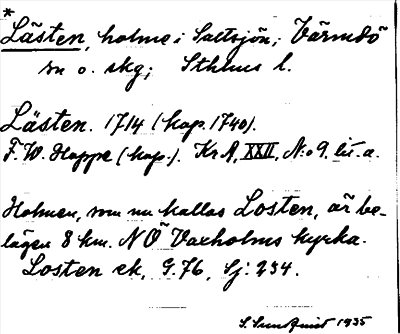 *
Lästen, holme i Saltsjön; Värmdö
sn o. skg; Sthlms l.
Lästen. 1714 (kop. 1740).
F. W. Hoppe (kop.). KrA, XXII, N:o 9. lit. a.
Holmen, som nu kallas Losten, är be-
lägen 8 km. NÖ Vaxholms kyrka.
Losten ek, G. 76, Sj: 234.
S. Sundquist 1935